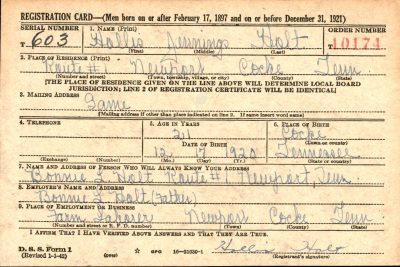 REGISTRATION CARD—(Men born on or after February 17, 1897 and on or before December 31, 1921)
SERIAL NUMBER 1. NAME (Print) ORDER NUMBER
T 603 Hollis Jennings Holt 10171
(First) (Middle) (Last)
2. PLACE OF RESIDENCE (Print)
Route #1 Newport Cocke Tenn
(Number and street) (Town, township, village, or city) (County) (State)
[THE PLACE OF RESIDENCE GIVEN ON THE LINE ABOVE WILL DETERMINE LOCAL BOARD
JURISDICTION; LINE 2 OF REGISTRATION CERTIFICATE WILL BE IDENTICAL]
3. MAILING ADDRESS
Same
[Mailing address if other than place indicated on line 2. If same insert word same]
4. TELEPHONE 5. AGE IN YEARS 6. PLACE OF BIRTH
21 Cocke
DATE OF BIRTH (Town or county)
12 17 1920 Tennessee
(Exchange) (Number) (Mo.) (Day) (Yr.) (State or country)
7. NAME AND ADDRESS OF PERSON WHO WILL ALWAYS KNOW YOUR ADDRESS
Bonnie L. Holt Route #1 Newport, Tenn
8. EMPLOYER'S NAME AND ADDRESS
Bonnie L Holt (Father)
9. PLACE OF EMPLOYMENT OR BUSINESS
Farm Laborer Newport Cocke Tenn
(Number and street or R. F. D. number) (Town) (County) (State)
I AFFIRM THAT I HAVE VERIFIED ABOVE ANSWERS AND THAT THEY ARE TRUE.
D. S. S. Form 1
(Revised 1-1-42) (over) GPO 16—21630-1 Hollis Holt
(Registrant's signature)